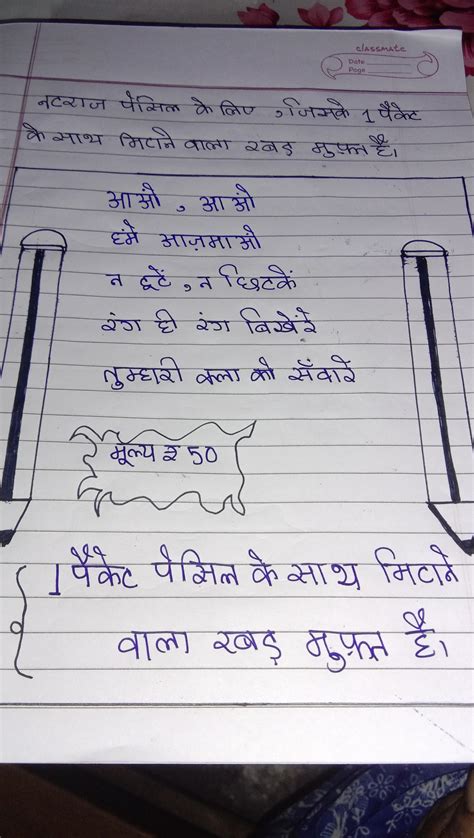 classmate
Date
Page
नटराज पेंसिल के लिए , जिसके 1 पैकेट
के साथ मिटाने वाला रबड़ मुफ़्त है।
आओ , आओ
हमें आज़माओ
न टूटें , न छिटकें
रंग ही रंग बिखेरें
तुम्हारी कला को सँवारें
मूल्य ₹ 50
1 पैकेट पेंसिल के साथ मिटाने
वाला रबड़ मुफ़्त है।